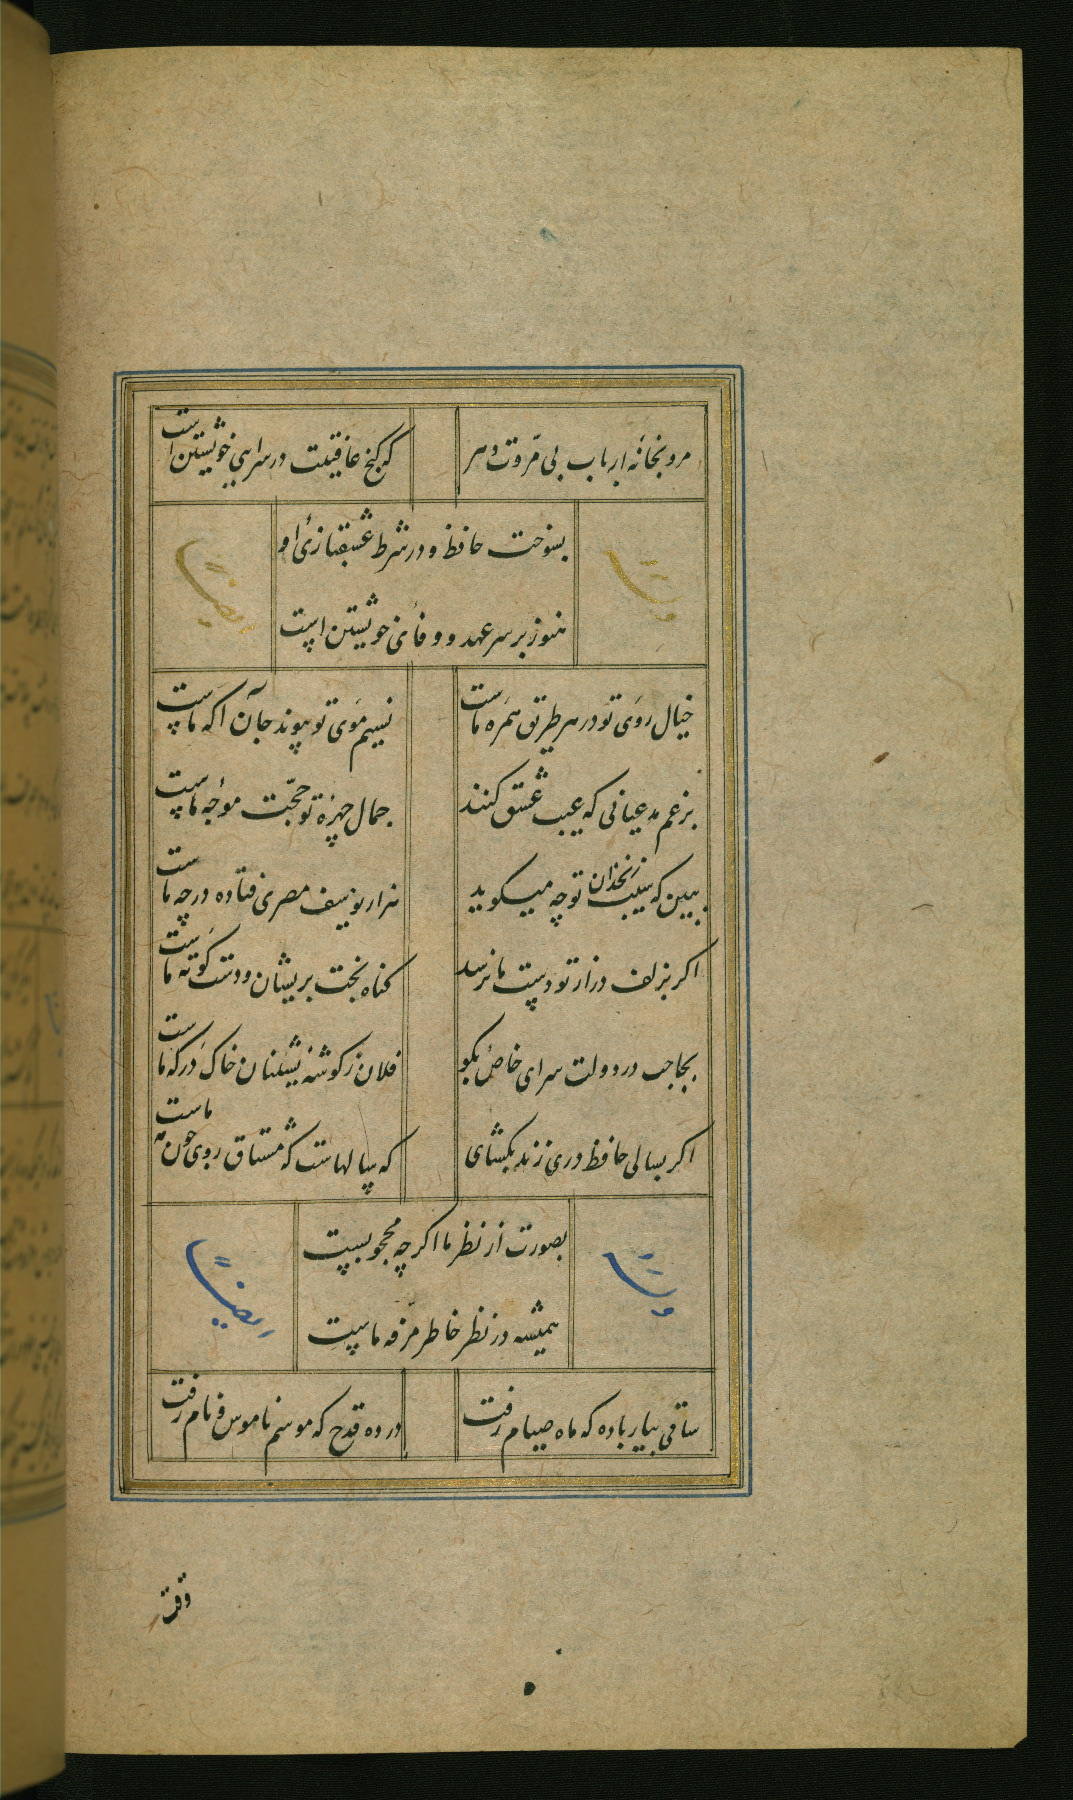 مرو بخانهٔ ارباب بی مروّت دهر
که کنج عافیتت در سرای خویشتن است
بسوخت حافظ و در شرط عشقبازئ او
هنوز بر سر عهد و وفای خویشتن است
وله
ایضا
خیال روی تو در هر طریق همره ماست
نسیم موی تو پیوند جان آگه ماست
بزعم مدعیانی که عیب عشق کنند
جمال چهرهٔ تو حجّت موجه ماست
ببین که سیب زنخدان تو چه میگوید
هزار یوسف مصری فتاده در چه ماست
اگر بزلف دراز تو دست ما نرسد
گناه بخت پریشان و دست کوته ماست
بحاجب در دولت سرای خاص بگو
فلان ز گوشه نشینان خاک درگه ماست
اگر بسالی حافظ دری زند بگشای
که سالهاست که مشتاق روی چون مه ماست
بصورت از نظر ما اگر چه محجوبست
همیشه در نظر خاطر مرفه ماست
وله
ایضا
ساقی بیار باده که ماه صیام رفت
در ده قدح که موسم ناموس و نام رفت
وقت